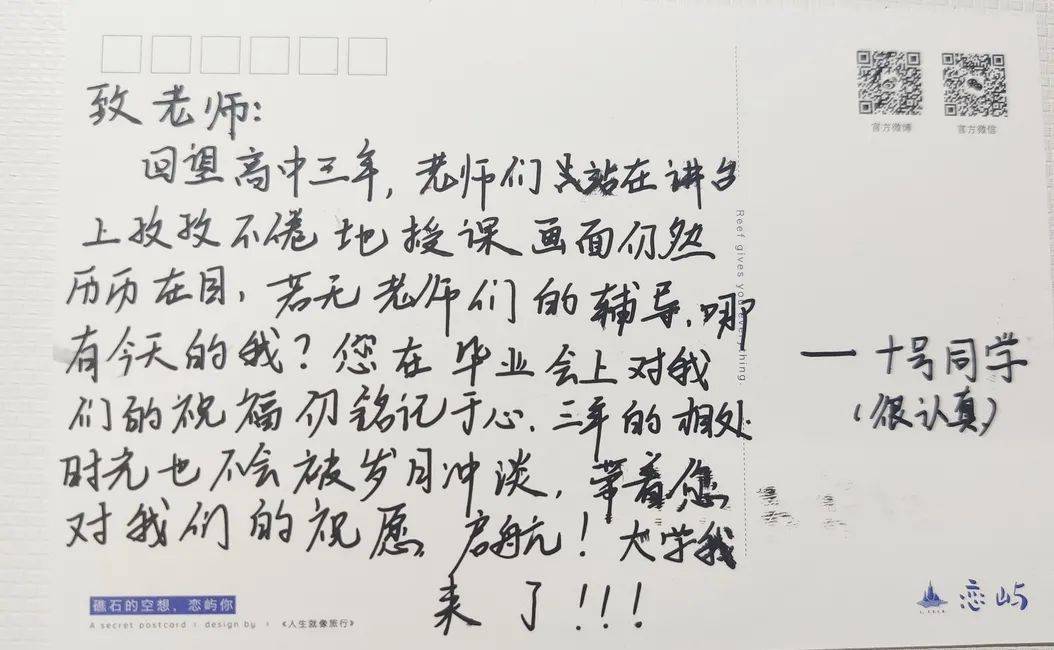 致老师:
回望高中三年,老师们总站在讲台
上孜孜不倦地授课画面仍然
历历在目,若无老师们的辅导,哪
有今天的我?您在毕业会上对我
们的祝福仍铭记于心,三年的相处
时光也不会被岁月冲淡,带着您
对我们的祝愿,启航!大学我
来了!!!
官方微博
官方微信
Reef gives you everything.
— 十号同学
(很认真)
礁石的空想、恋屿你
A secret postcard | design by | 《人生就像旅行》
恋屿